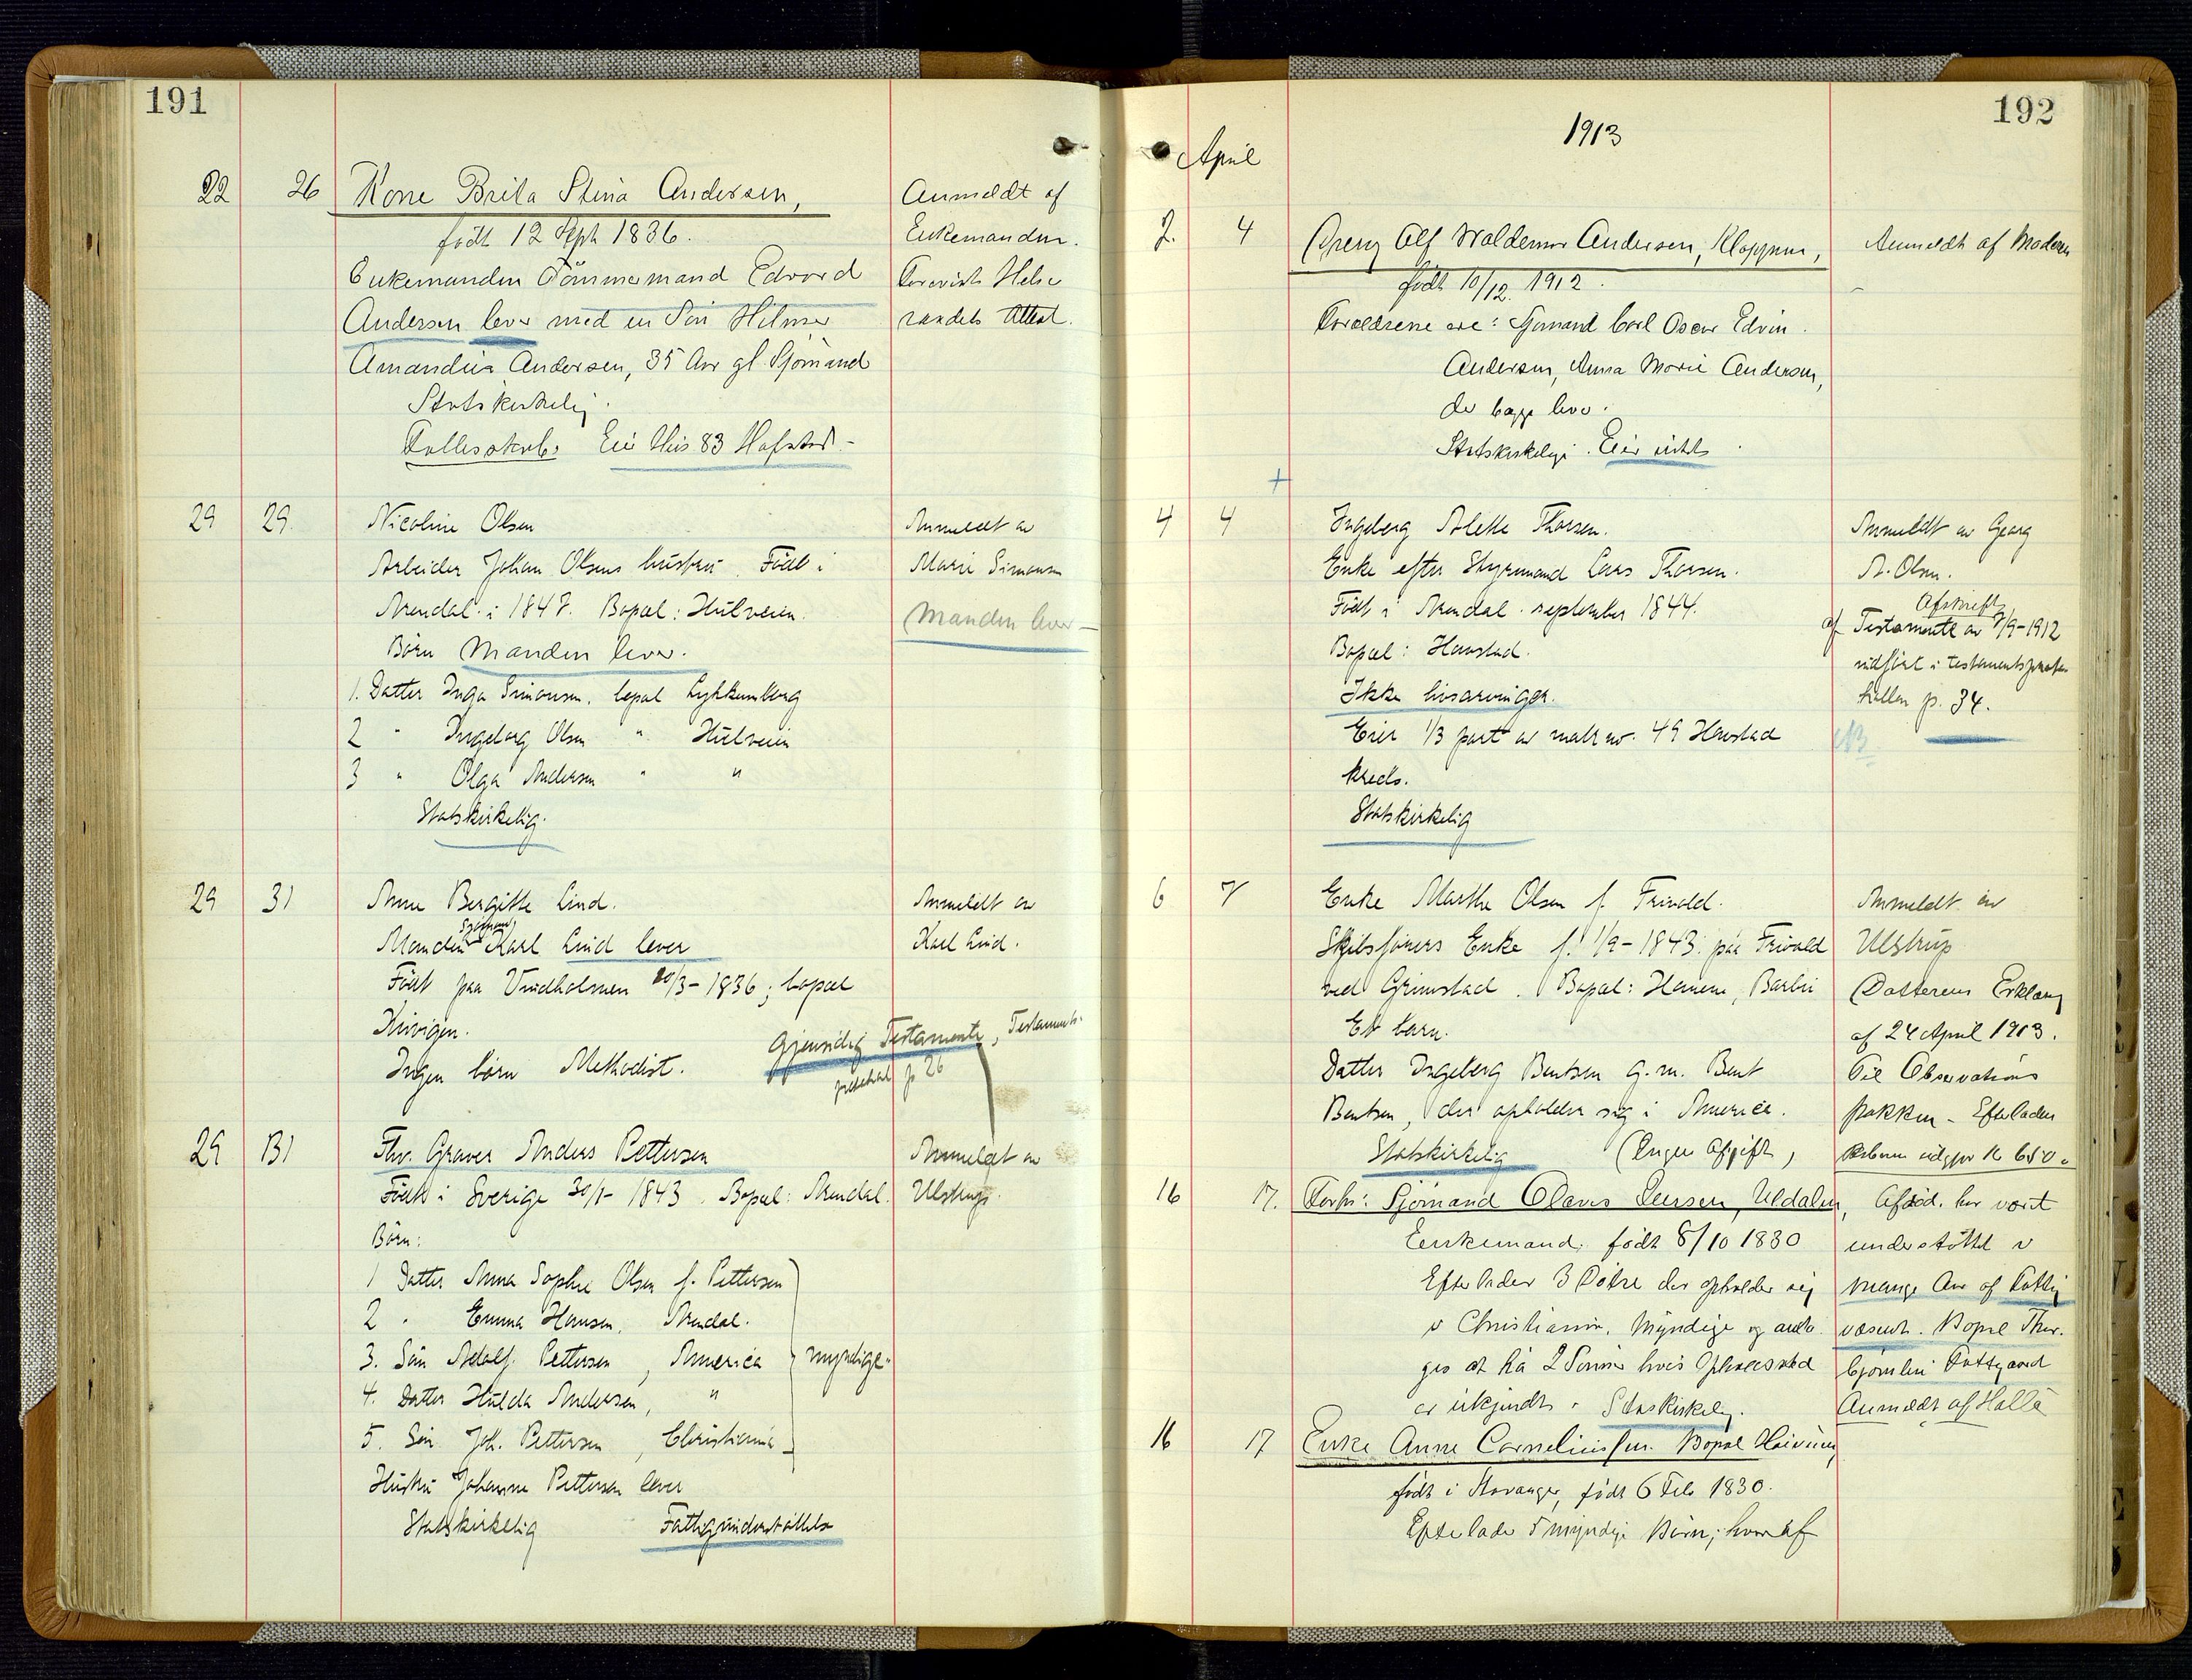 191
22 26 Kone Brita Stina Andersen, Anmeldt af
født 12 Sept 1836. Enkemanden.
Enkemanden Tömmermand Edvard Forevist Helse
Andersen lever med en Sön Hilmer raadets Attest.
Andersen, 35 Aar gl. Sjömand
Statskirkelig.
Fællesskab. Eier Hus 83 Hafstad.-
29 29 Nicoline Olsen Anmeldt av
Arbeider Johan Olsens hustru. Född i Marie Simonsen
Arendal i 1847. Bopæl: Hulveien. Manden lever-
Børn Manden lever.
1. Datter Inga Simonsen, bopæl
2 " Ingeborg Olsen " Hulveien
3 " Olga Andersen " "
Statskirkelig.
29 31 Anne Bergitte Lind. Anmeldt av
Sjömand
Manden Karl Lind lever Karl Lind.
Född paa Vindholmen 20/3-1836; bopæl
Gjensidig Testamente, Testaments-
Ingen börn Methodist. protokol p 26
29 31 Fhv. Graver Anders Pettersen Anmeldt av
Född i Sverige 30/1-1843. Bopæl: Arendal. Ulstrup.
Børn:
1 Datter Anna Sophie Olsen f. Pettersen
2 " Emma Hansen, Arendal.
3. Sön Adolf Pettersen, America myndige.
4. Datter Hulda Andersen, "
5. Sön Joh. Pettersen, Christiania
Hustru Johanne Pettersen lever
Statskirkelig Fattigunderstöttelse
192
1913
April
2. 4 Dreng Alf Waldemar Andersen, Kloppene, Anmeldt af Moderen
född 10/12. 1912.
Forældrene ere: Sjömand Carl Oscar Edvin
Andersen, Anna Marie Andersen,
der begge lever.
Statskirkelig. Eier intet.
+
4 4 Ingeborg Alette Thorsen. Anmeldt av Georg
Enke efter Styrmand Lars Thorsen. A. Olsen.
Född i Arendal september 1844. Afskrift
af Testamente av 7/9-1912
Bopæl: Havstad. indfört i testamentsproto-
Ikke livsarvinger. kollen p. 34.
Eier 1/3 part av matr no. 49 Havstad NB
kreds.
Statskirkelig
6 7 Enke Marthe Olsen f. Frivold. Anmeldt av
Skibsförers Enke f. 1/9-1843 paa Frivold Ulstrup
ved Grimstad. Bopæl: Barbu (Datterens Erklæring
Et barn. af 24 April 1913.
Datter Ingeborg Bentsen g.m. Bent Til Observations
Bentsen, der opholder sig i America. pakken - Efterladen
Statskirkelig (Ingen Afgift) skaben udgjør K 650.
16 17. Forhv: Sjömand Olaves Larsen, Uldalen, Afdöd. har været
Enkemand; født 8/10 1830 understöttet i
Efterlader 3 Dötre der opholder sig mange Aar af Fattig
i Christiania. Myndige og anta- væsenet. Bopæl Thor-
ges at ha 2 Sönner hvis Opholdssted björnlien Fattiggaard
er ukjendt. Statskirkelig. Anmeldt af Hallä
16 17 Enke Anne Corneliussen. Bopæl
født i Stavanger, født 6 Feb 1830.
Efterlader 5 myndige Börn, hvoraf